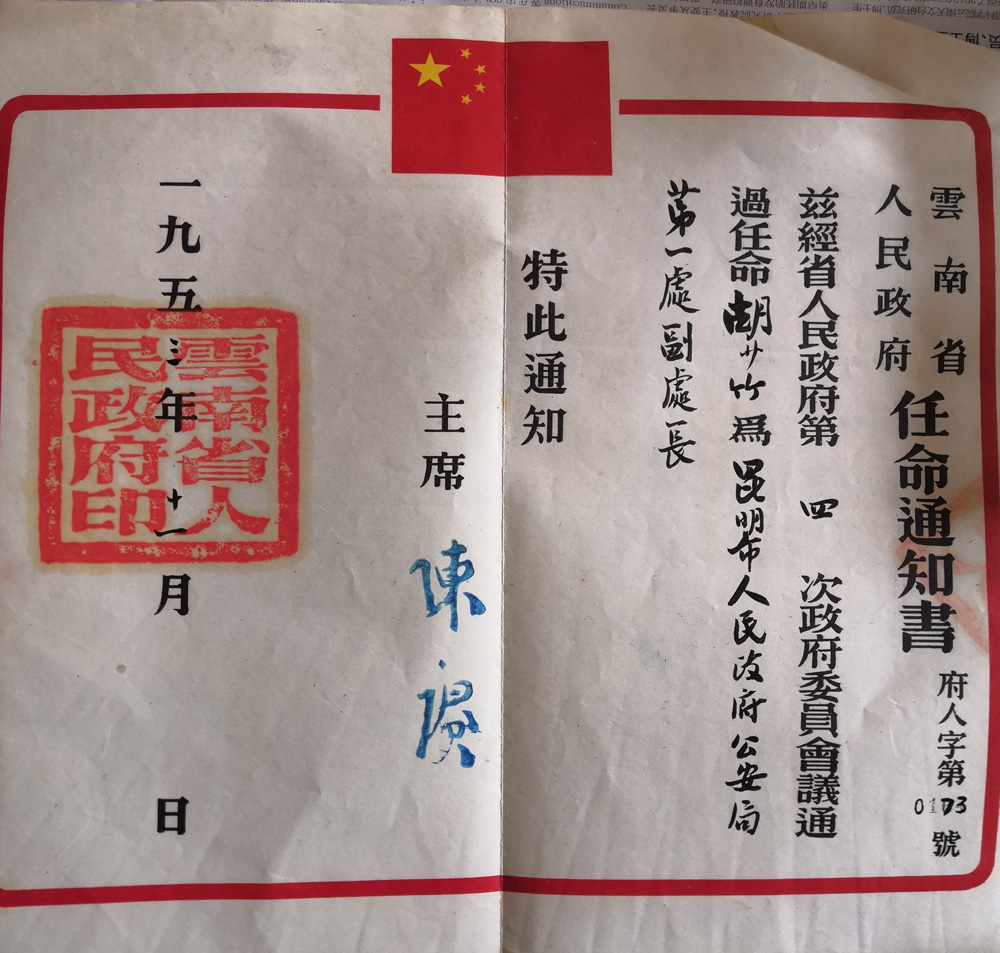 雲南省
人民政府
任命通知書
府人字第0173號
茲經省人民政府第四次政府委員會議通
過任命胡少竹爲昆明市人民政府公安局
第一處副處長
特此通知
主席
陳賡
一九五三年十一月 日
雲南省人
民政府印